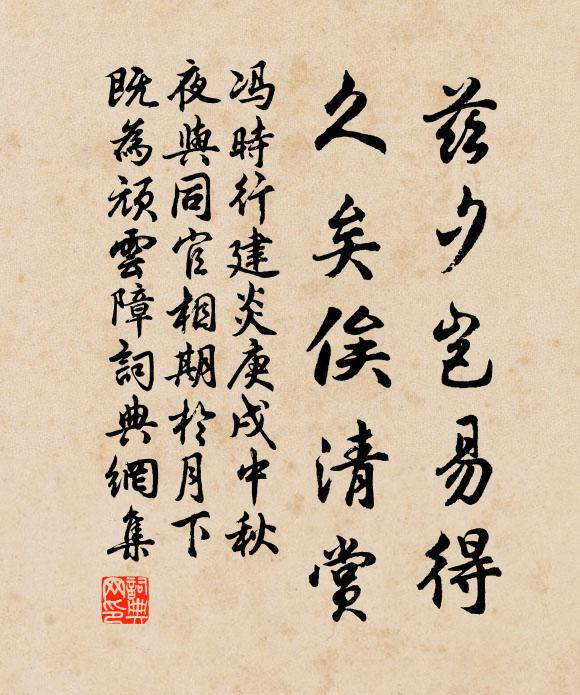 茲夕豈易得
久矣俟清賞
馮時行建炎庚戌中秋
夜與同官相期於月下
既為頑雲障詞典網集
詞典
网印